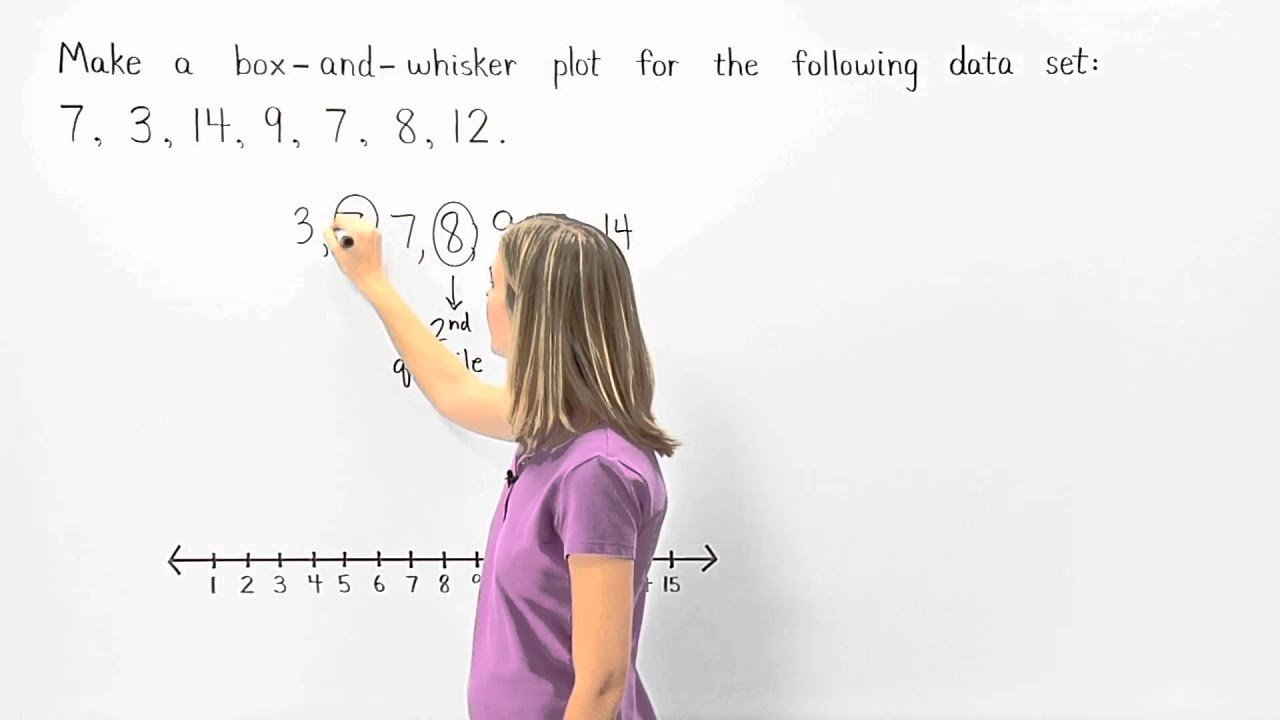 Make a box-and-whisker plot for the following data set:
7, 3, 14, 9, 7, 8, 12.
3, 7, 7, 8, 9 14
2nd
1 2 3 4 5 6 7 8 9 15